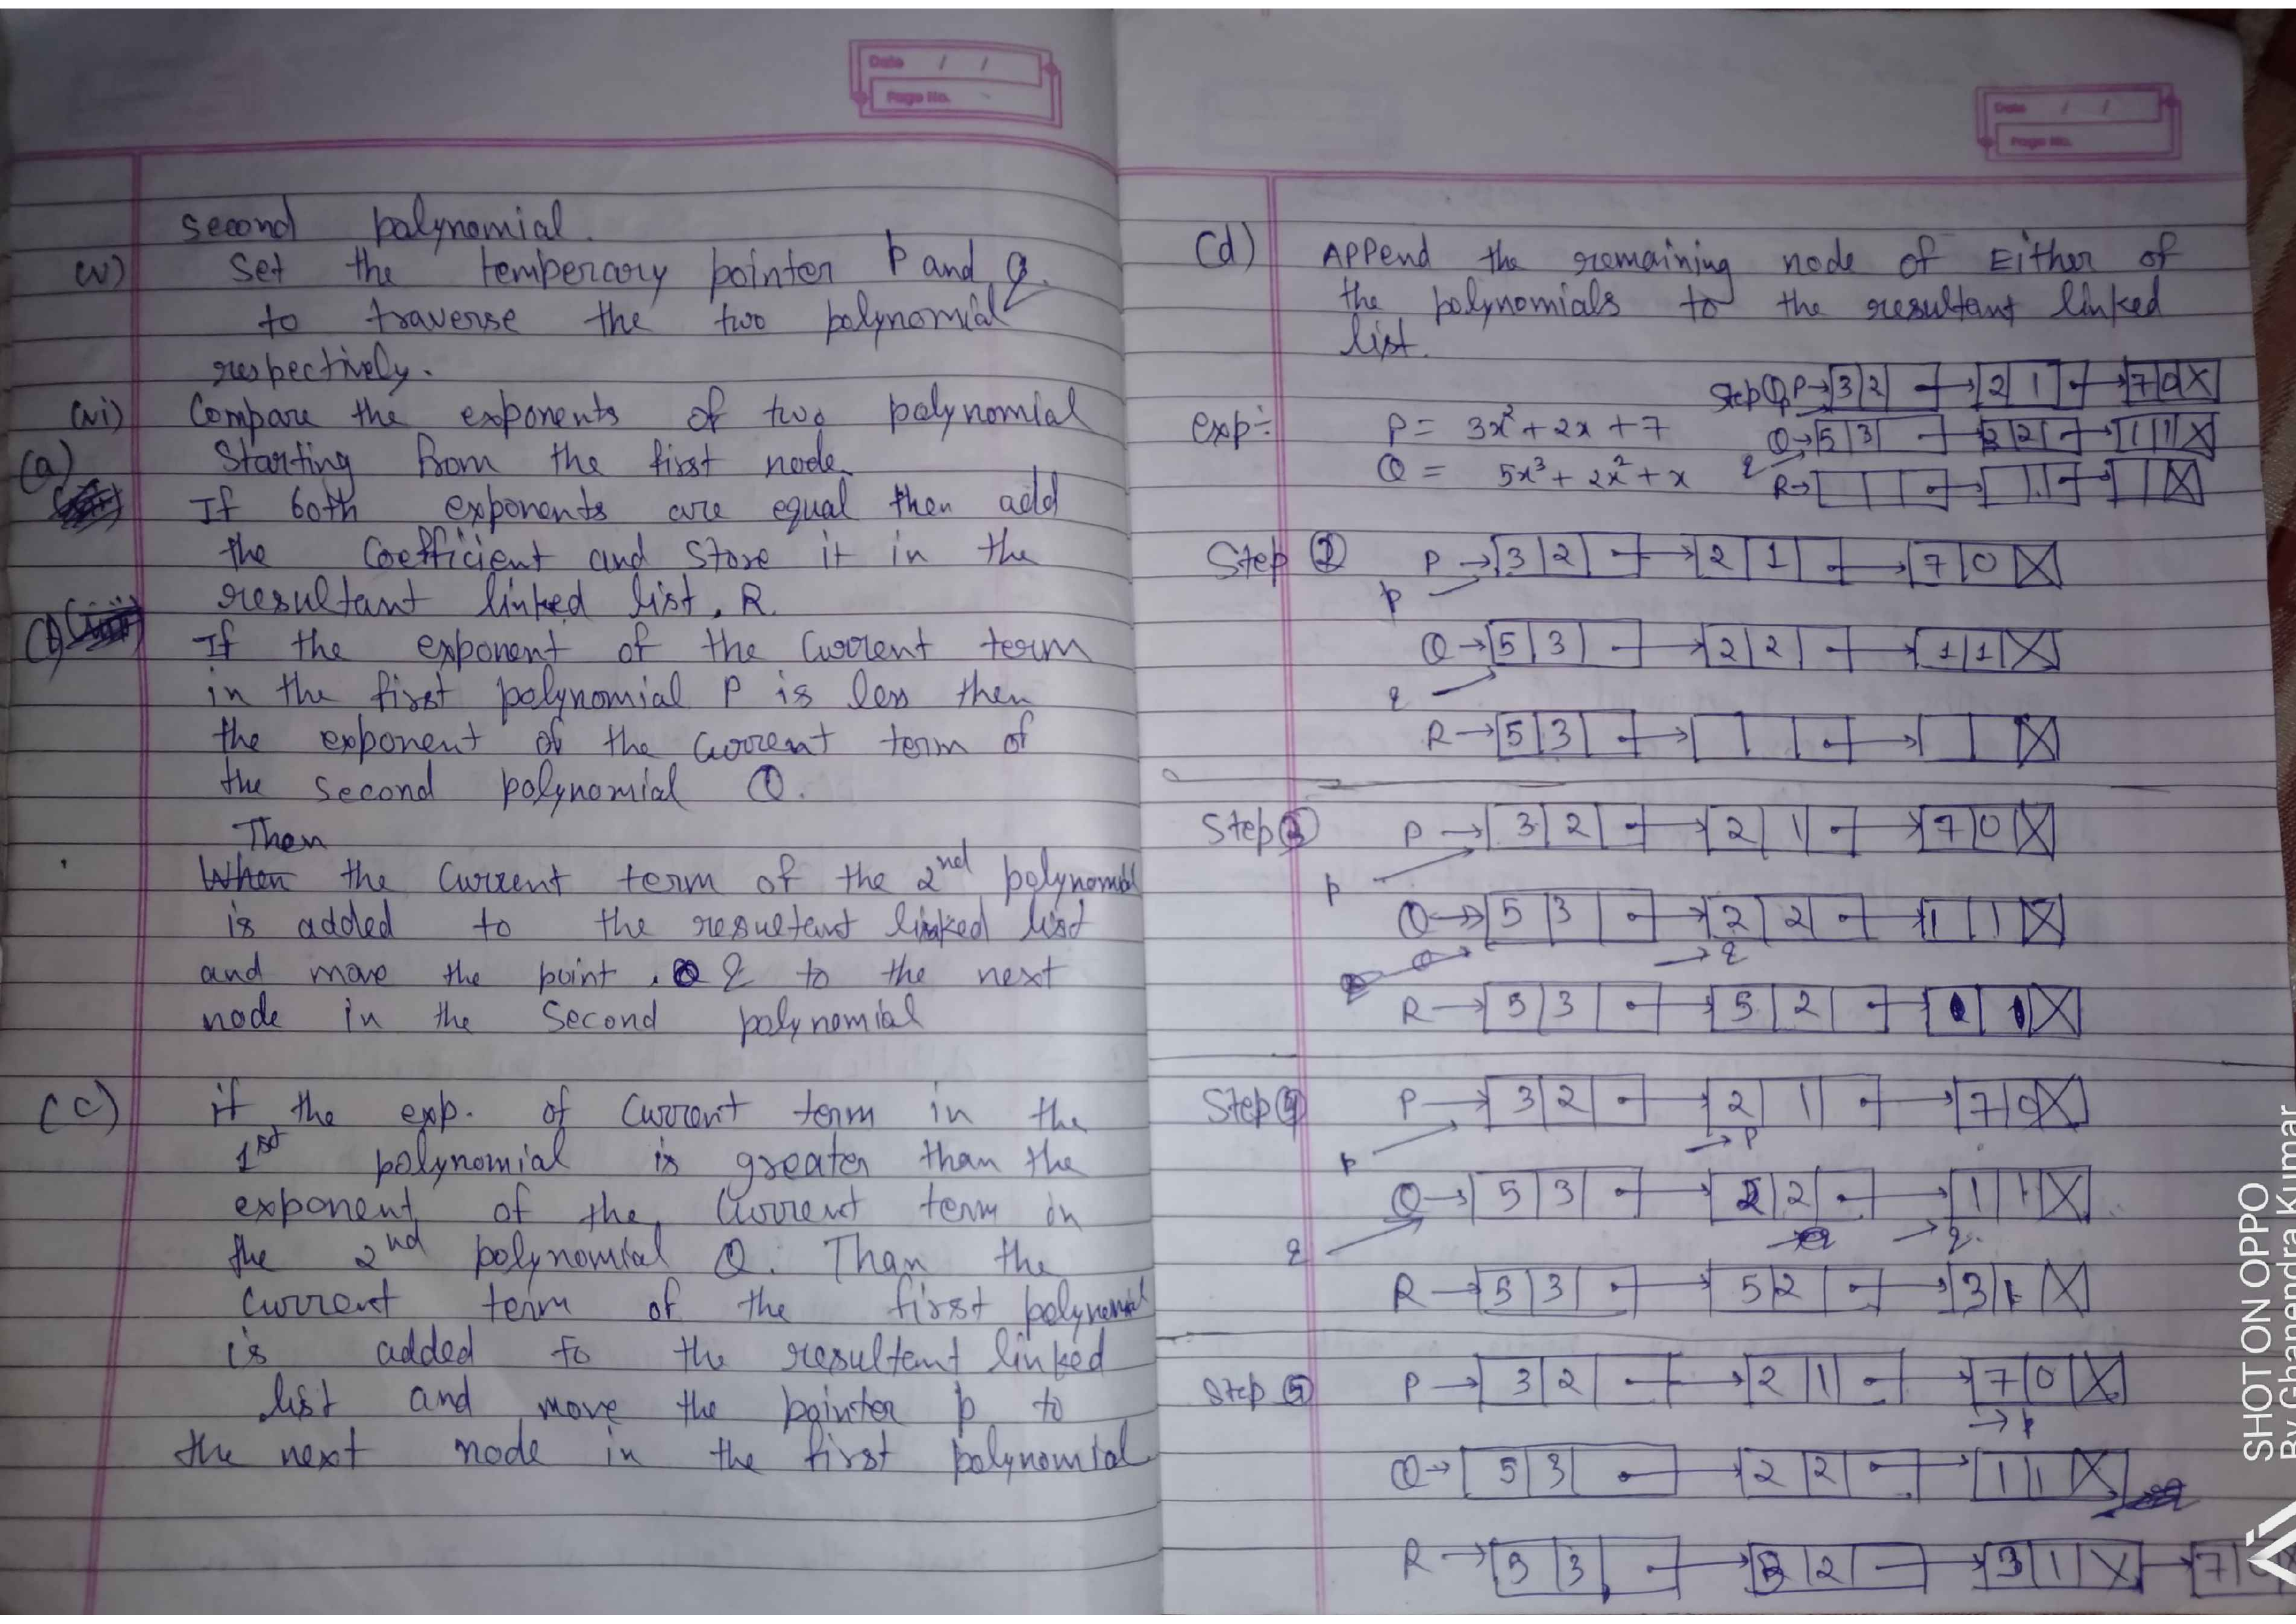 Date / /
Page No.
second polynomial.
(v) Set the temperary pointer P and q.
to traverse the two polynomial
respectively.
(vi) Compare the exponents of two polynomial
Starting from the first node.
(a) If both exponents are equal then add
the Coefficient and Store it in the
resultant linked list, R.
If the exponent of the current term
in the first polynomial P is less then
the exponent of the current term of
the second polynomial Q.
Then
When the current term of the 2nd polynomial
is added to the resultant linked list
and move the point q to the next
node in the Second polynomial
(c) if the exp. of current term in the
1st polynomial is greater than the
exponent of the current term in
the 2nd polynomial Q. Than the
current term of the first polynomial
is added to the resultant linked
list and move the pointer p to
the next node in the first polynomial
Date / /
Page No.
(d) Append the remaining node of Either of
the polynomials to the resultant linked
list.
Step ① P→ 3 2 → 2 1 → 7 0 X
exp÷ P = 3x² + 2x + 7
Q→ 5 3 → 2 2 → 1 1 X
Q = 5x³ + 2x² + x
q
R→ X
Step ② P → 3 2 → 2 1 → 7 0 X
p
Q → 5 3 → 2 2 → 1 1 X
q
R → 5 3 → → X
Step ③ P → 3 2 → 2 1 → 7 0 X
p
Q → 5 3 → 2 2 1 1 X
→ q
R → 5 3 → 5 2 → X
Step ④ P → 3 2 → 2 1 → 7 0 X
p → P
Q → 5 3 → 2 2 → 1 1 X
q → q
R → 5 3 → 5 2 → 3 1 X
Step ⑤ P → 3 2 → 2 1 → 7 0 X
→ p
Q → 5 3 → 2 2 → 1 1 X
R → 5 3 → 5 2 → 3 1 X → 7 0
SHOT ON OPPO
By Ghanendra Kumar